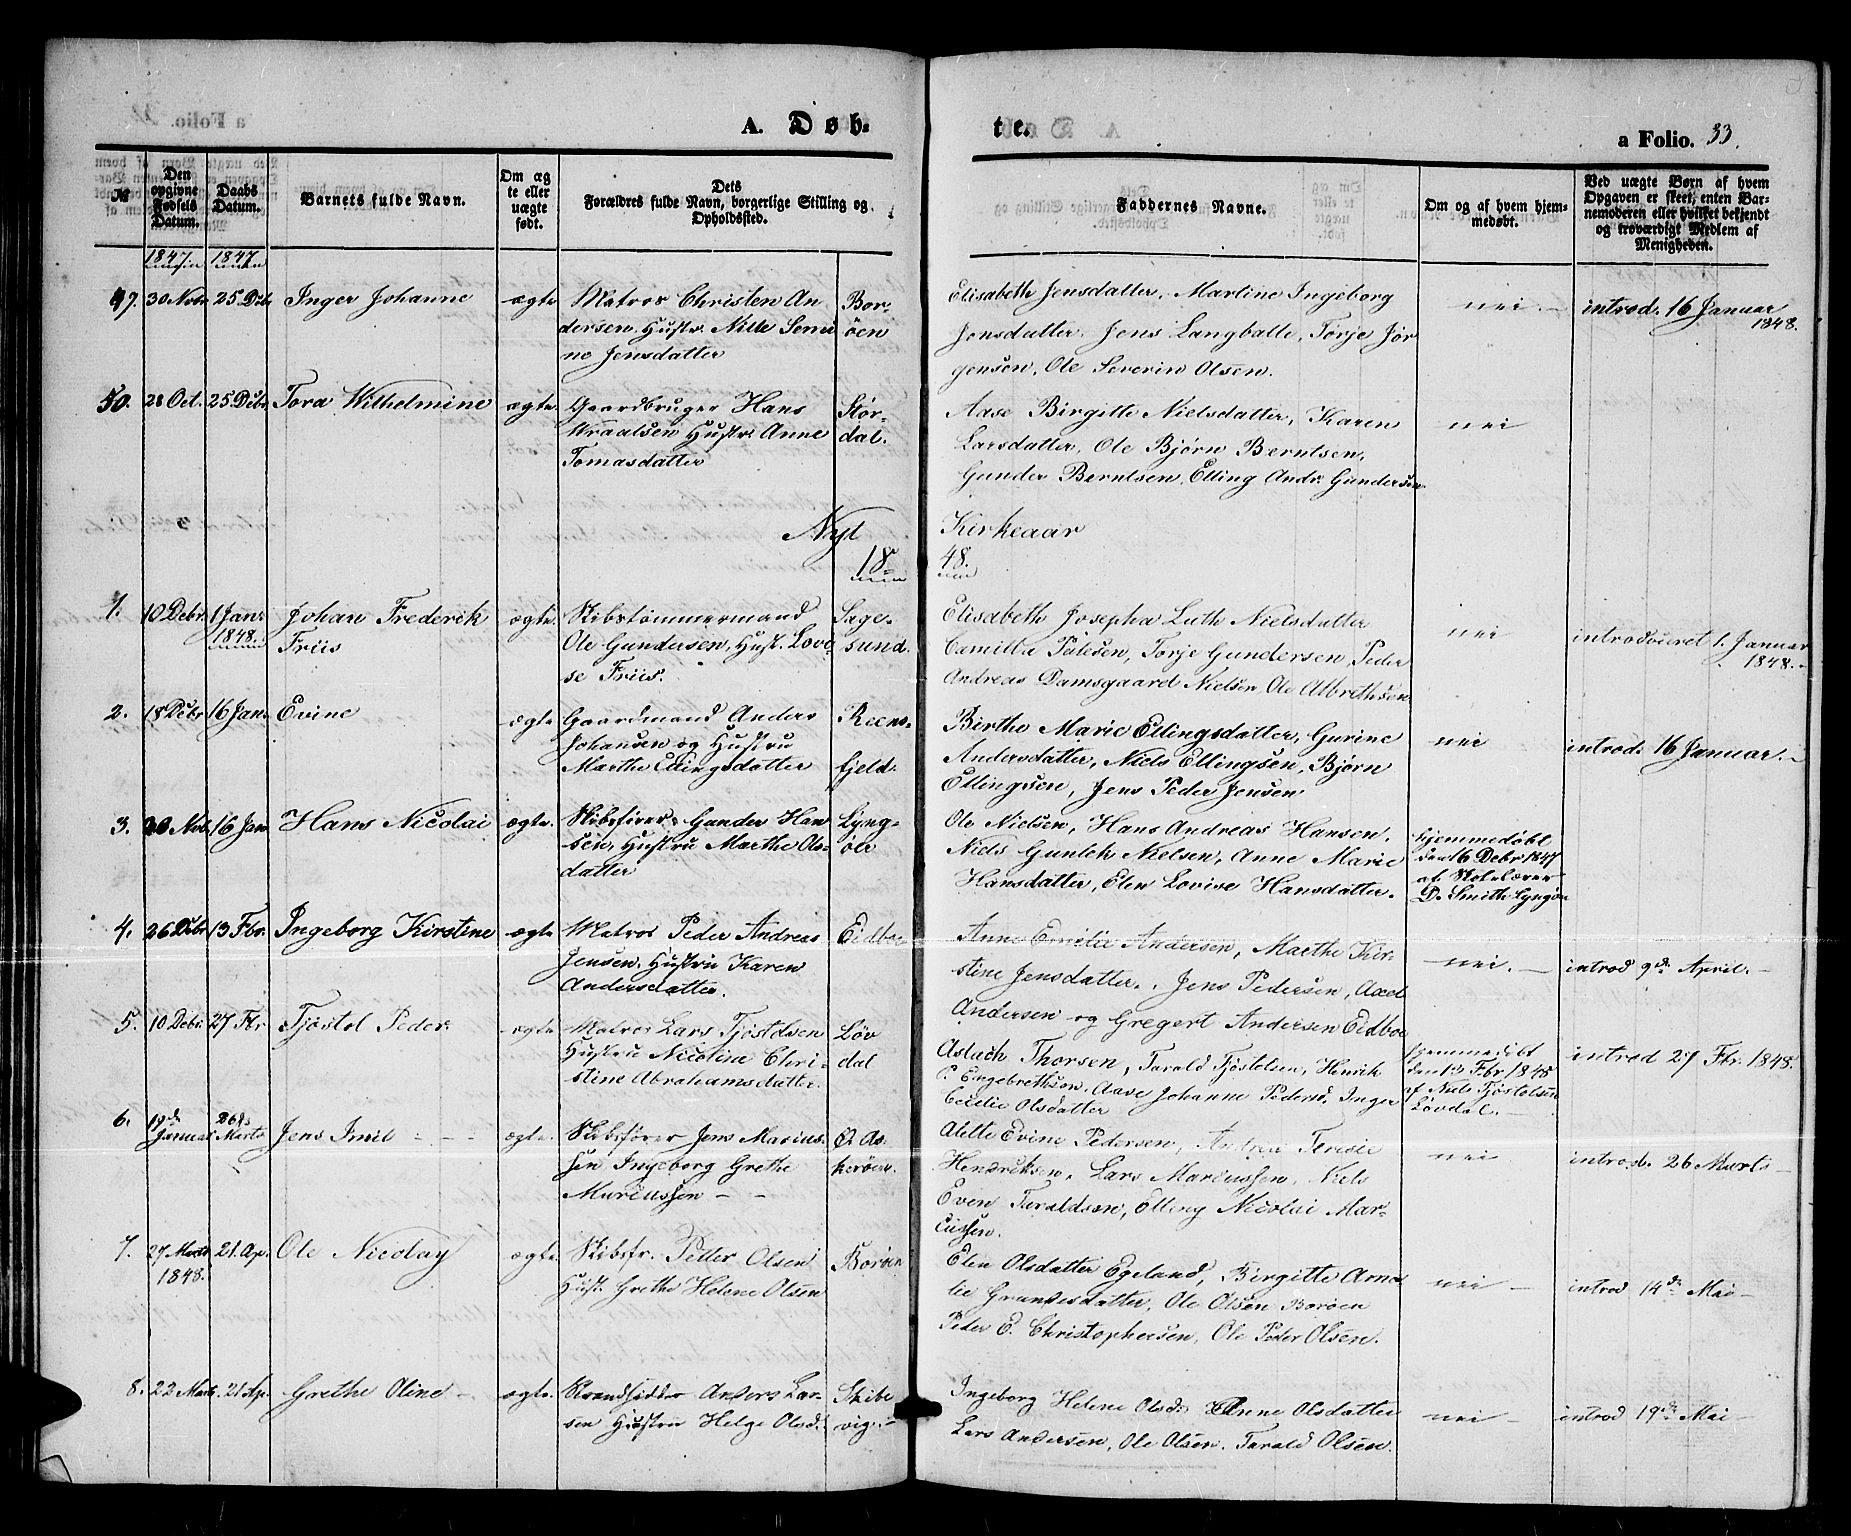 A. Døb-
te.
a Folio. 33.
No
Den opgivne Fødsels Datum.
Daabs Datum.
Barnets fulde Navn.
Om æg te eller uægte født.
Dets Forældres fulde Navn, borgerlige Stilling og Opholdssted.
Faddernes Navne.
Om og af hvem hjem- medøbt.
Ved uægte Børn af hvem Opgaven er skeet, enten Bar- nemoderen eller hvilket bekjendt og troværdigt Medlem af Menigheden.
1847. 1847.
47. 30 Nvbr 25. Dcbr Inger Johanne ægte Matros Christen An
dersen, Hustr. Nille Serui
ne Jensdatter
Bor-
öen
Elisabeth Jensdatter, Martine Ingeborg
Jonsdatter, Jens Langballe, Torje Jör
gensen, Ole Severin Olsen.
nei. introd. 16 Januar
1848.
50. 28 Oct. 25. Dcbr. Tora Wilhelmine ægte Gaardbruger Hans
Wraalsen Hustr. Anne
Tomasdatter
Stör-
dal.
Aase Birgitte Nielsdatter, Karen
Larsdatter, Ole Bjørn Berntsen,
Gunder Berntsen, Elling Andr. Gundersen
nei
Nyt Kirkeaar
18 48.
1. 10 Debr. 1 Jan. Johan Frederik ægte. Skibstømmermand
1848. Friis Ole Gundersen, Hust. Lovi-
se Friis.
Sage-
sund.
Elisabeth Josepha Luth Nielsdatter
Camilla Pålesen, Torje Gundersen, Peder
Andreas Damsgaard Nielsen Ole Albrethsen
nei introduceret 1. Januar
1848.
2. 18 Debr 16 Jan. Evine ægte Gaardmand Anders
Johansen og Hustru
Marthe Ellingsdatter
Reens-
fjeld.
Birthe Marie Ellingsdatter, Gurine
Andersdatter, Niels Ellingsen, Bjørn
Ellingsen, Jens Peder Jensen
nei introd. 16 Januar.
3. 20 Nvb. 16 Jan Hans Nicolai ægte. Skibsfører Gunder Han
sen, Hustru Marthe Ols-
datter
Lyng-
öer
Ole Nielsen, Hans Andreas Hansen,
Niels Gunleh Nielsen, Anne Marie
Hansdatter, Elen Lovise Hansdatter.
Hjemmedöbt
den 16 Debr 1847
af Skolelærer
D. Smith Lyngör
4. 26 Debr 13 Fbr. Ingeborg Kirstine ægte Matros Peder Andreas
Jensen, Hustru Karen
Andersdatter.
Eidboe
Anne Emilie Andersen, Marthe Kir-
stine Jensdatter, Jens Pedersen, Axel
Andersen og Gregert Andersen Eidboe
nei. introd 9de April.
5. 10 Debr. 27 Fbr Tjøstol Peder ægte Matros Lars Tjøstolsen
Hustru Nicoline Chri-
stine Abrahamsdatter.
Löv
dal
Aslach Thorsen, Tarald Tjöstolsen, Henrik
P. Engebrethsen, Aase Johanne Pedersd. Inger
Cecelie Olsdatter
hjemmedöbt
den 13 Fbr 1848
af Niels Tjöstolsen
Lövdal.
introd 27 Fbr. 1848.
6. 19de 26de
Januar Marts Jens Imil ægte. Skibsfører Jens Marius-
sen Ingeborg Grethe
Mariussen
Ö As-
keröen.
Alette Evine Pedersen, Andrea Teresie
Hendriksen, Lars Mariussen, Niels
Even Taraldsen, Elling Nicolai Mar-
iussen.
nei introd. 26 Marts
7. 27 Marts 21. Ap. Ole Nicolay ægte Skibsfr. Peder Olsen
1848. Hust. Grethe Helene Olsen
Boröen
Elen Olsdatter Egeland, Birgitte Ama-
lie Gundersdatter, Ole Olsen Boröen
Peder E. Christophersen, Ole Peder Olsen.
nei introd 14de Mai
8. 22 Marts. 21 Ap. Grethe Oline ægte. Strandsidder Anders Lar-
sen Hustru Helge Olsd.
Skibe
vig.
Ingeborg Helene Olsd. Anne Olsdatter
Lars Andersen, Ole Olsen. Tarald Olsen.
nei introd 19de Mai